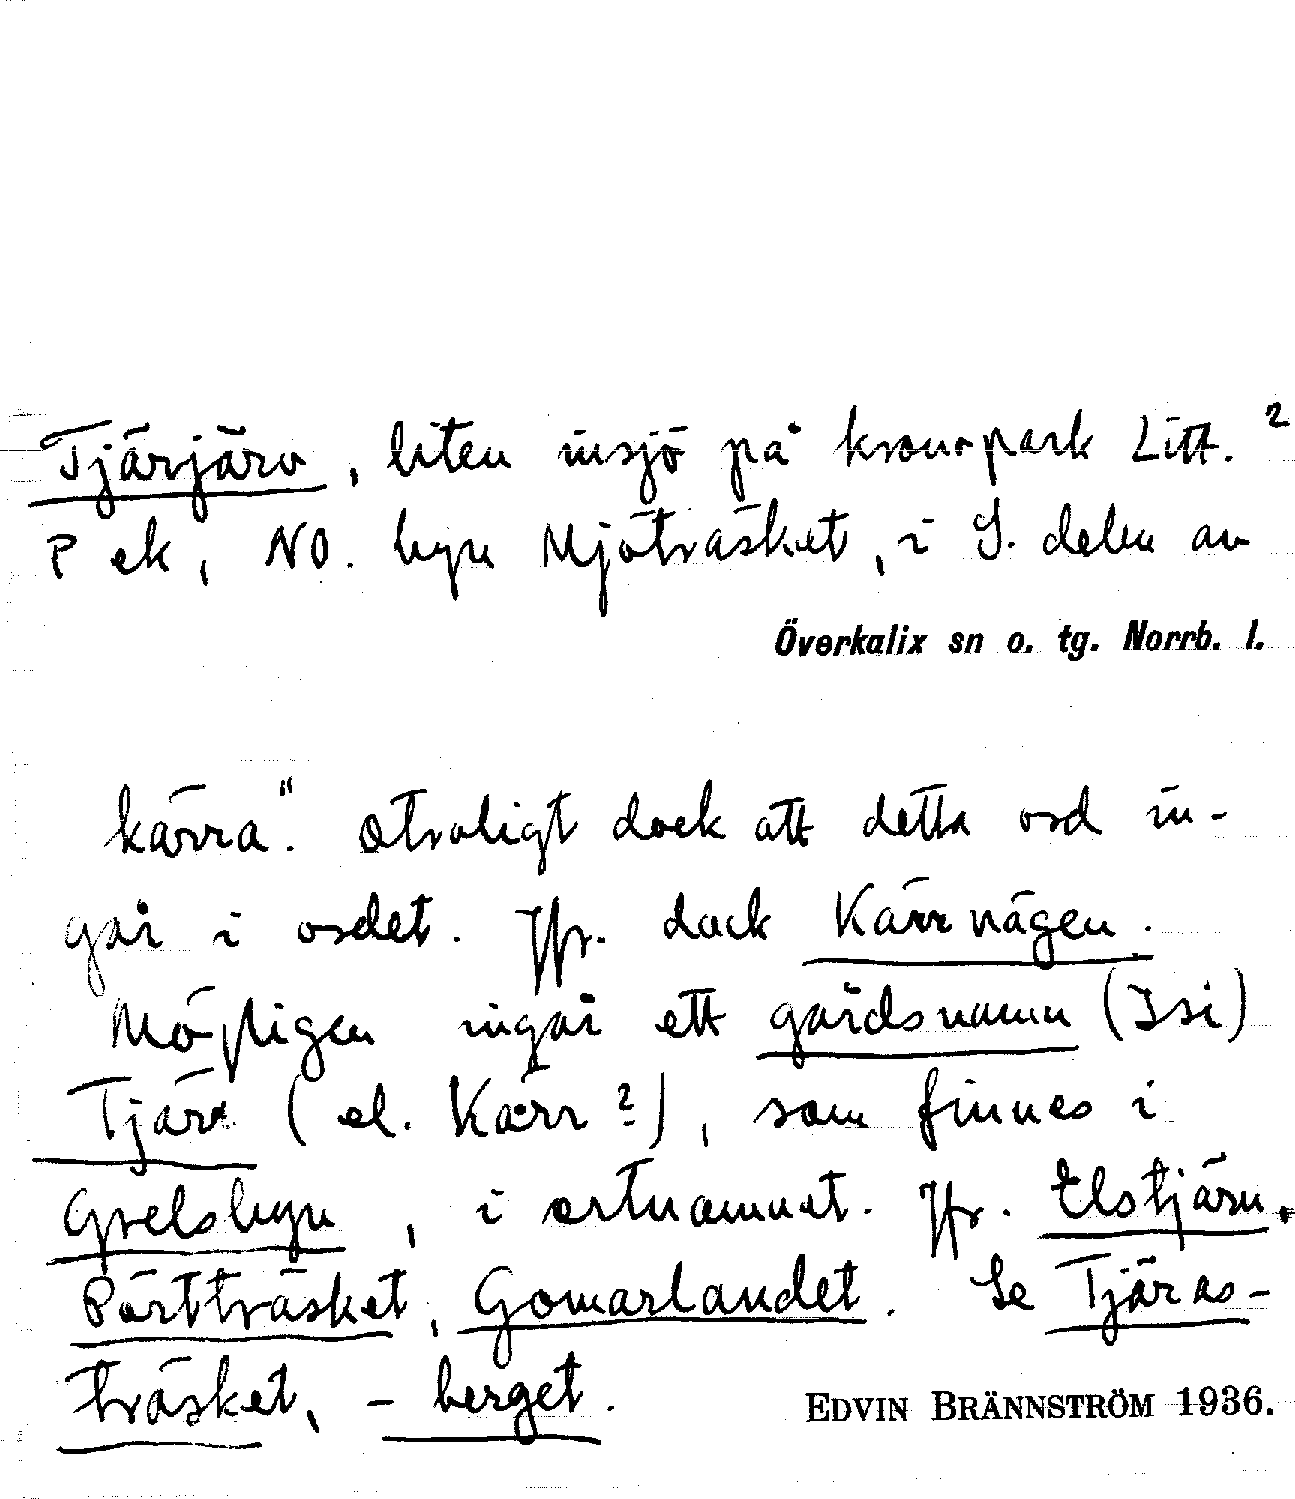 Tjärjärv, liten insjö på kronopark Litt. 2
P ek, NO. byn Mjöträsket, i S. delen av
Överkalix sn o. tg. Norrb. l.
kärra". Otroligt dock att detta ord in-
går i ordet. Jfr. dock Kärrvägen.
Möjligen ingår ett gårdsnamn (Isi)
Tjär (el. Kärr?), som finnes i
Grelsbyn, i ortnamnet. Jfr. Elstjärn,
Pörtträsket, Gomarlandet. Se Tjäras-
träsket, -berget.
EDVIN BRÄNNSTRÖM 1936.